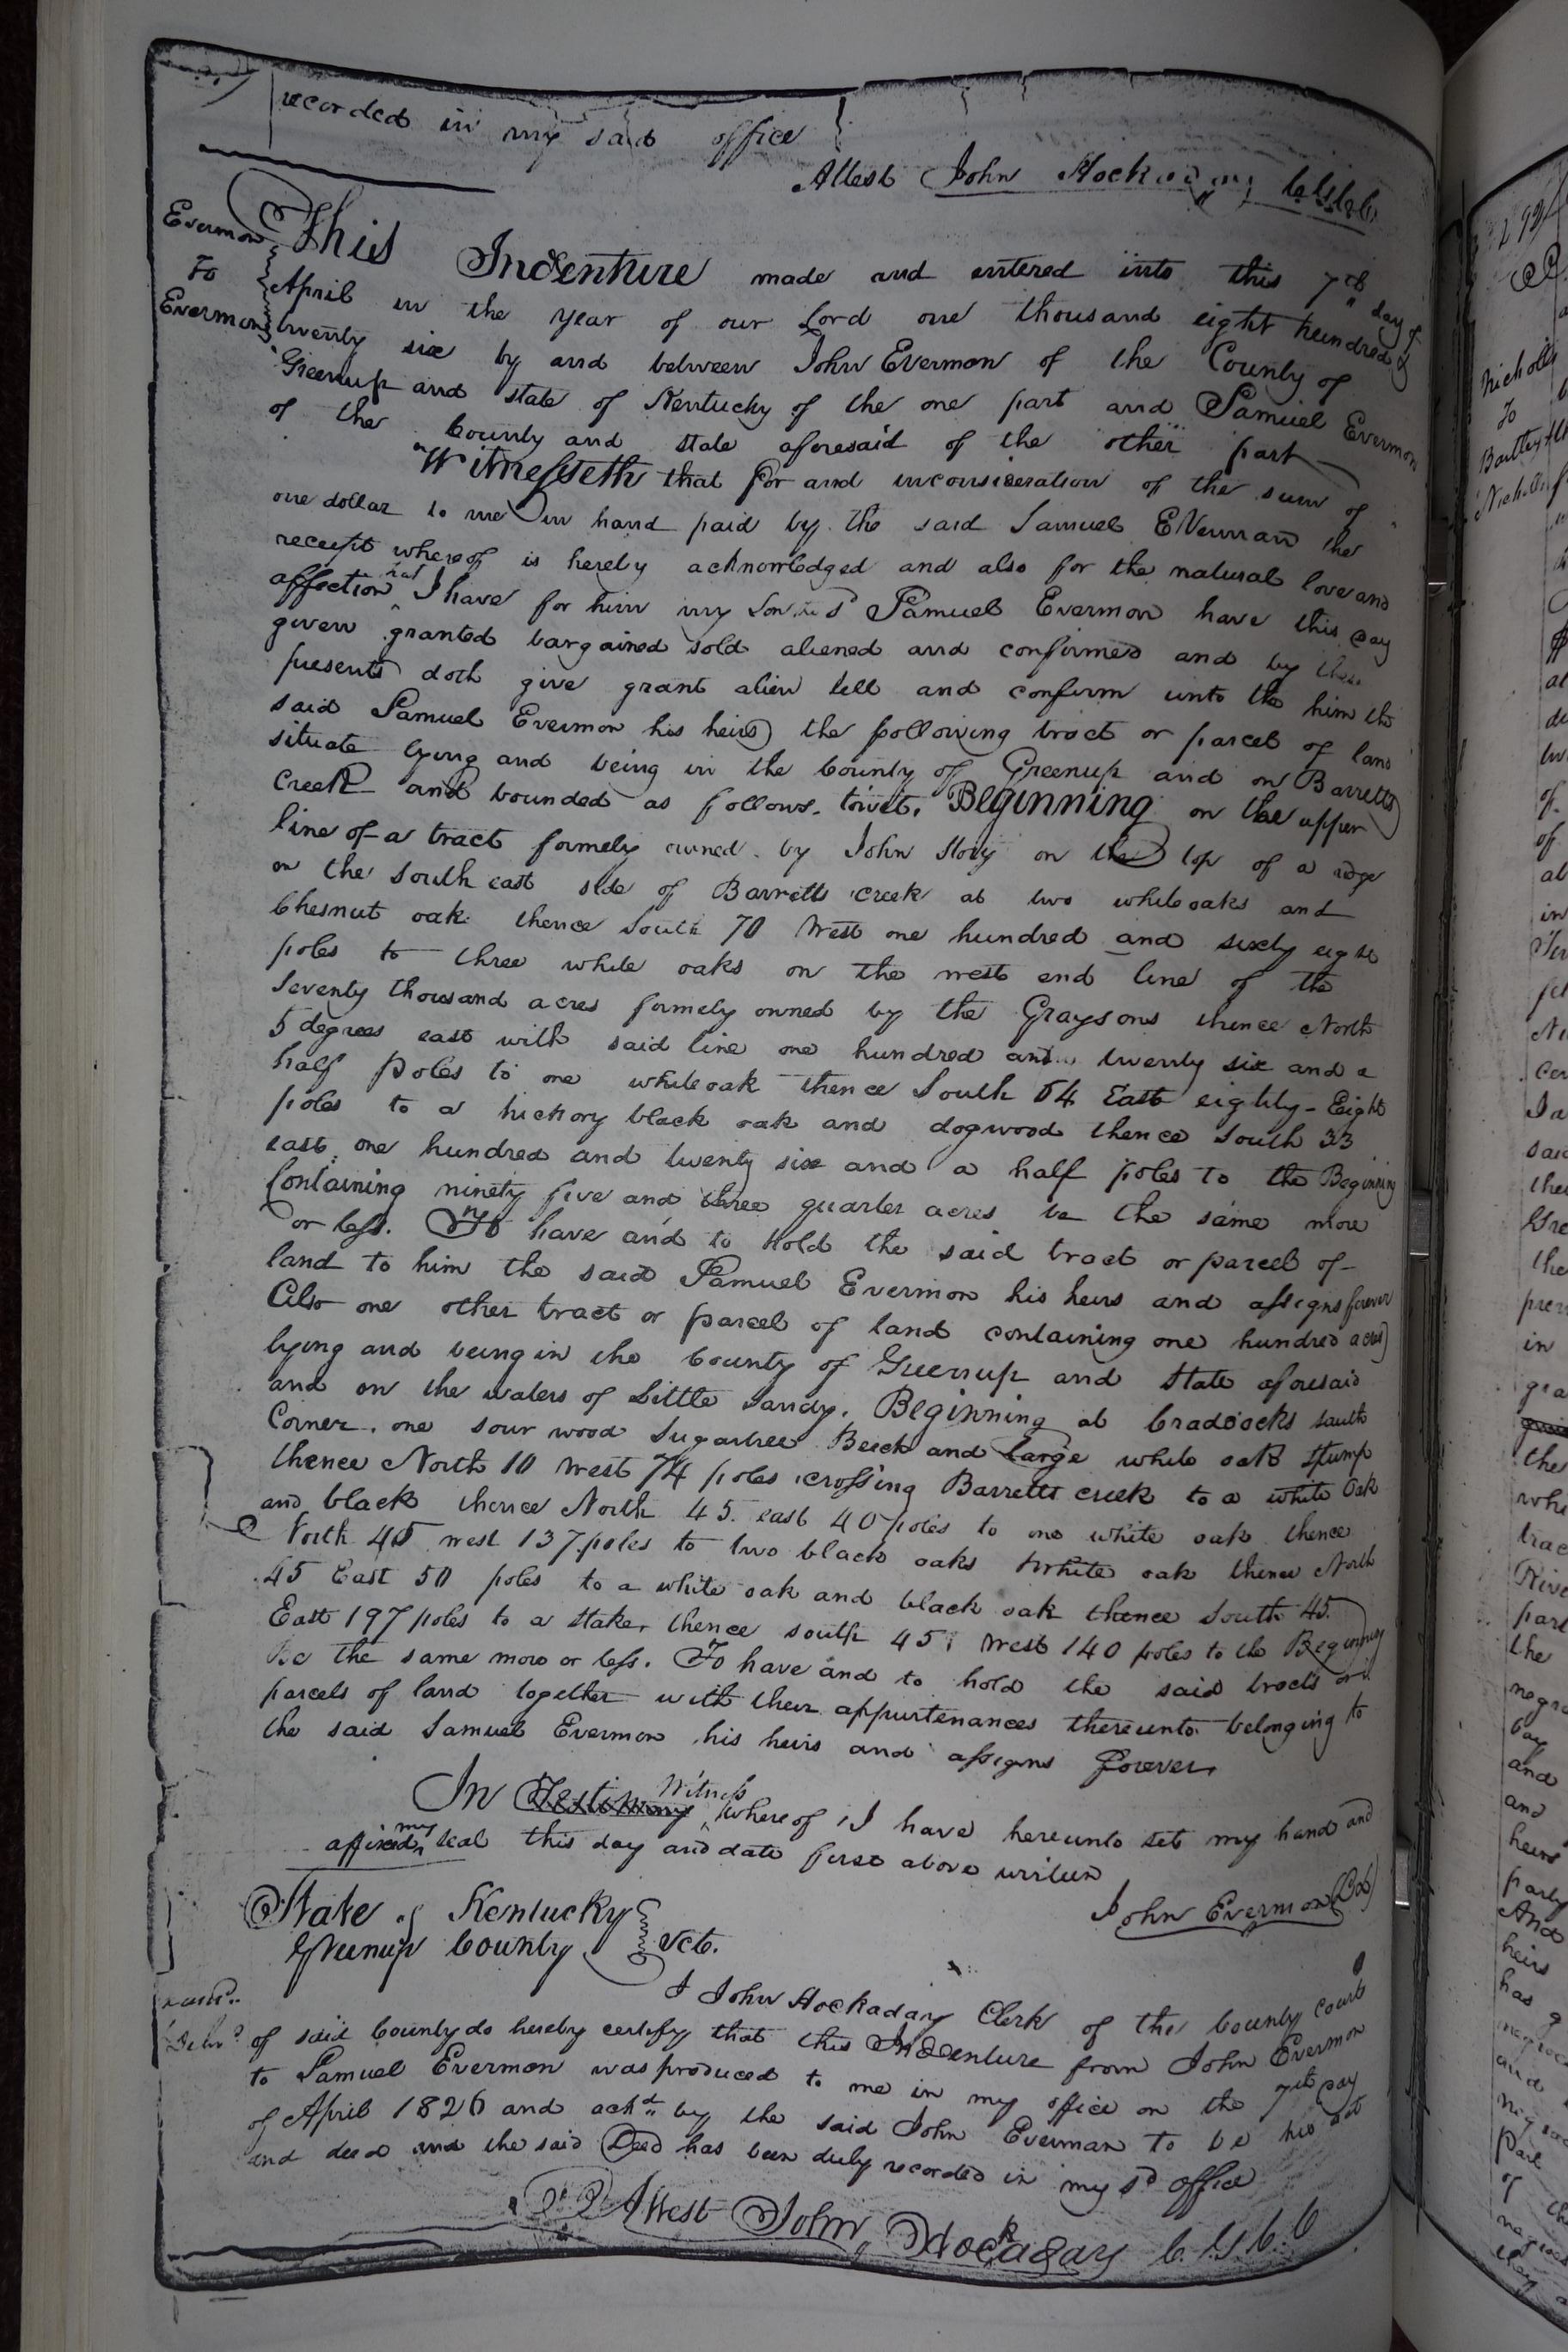 recorded in my said office
Attest John Hockaday C.G.C.C.
Evermon
To
Evermon
This Indenture made and entered into this 7th day of
April in the year of our Lord one thousand eight hundred &
twenty six by and between John Evermon of the County of
Greenup and state of Kentucky of the one part and Samuel Evermon
of the County and state aforesaid of the other part
Witnesseth that for and inconsideration of the sum of
one dollar to me in hand paid by the said Samuel Everman the
receipt whereof is hereby acknowledged and also for the natural love and
affection that I have for him my Son Samuel Evermon have this day
given granted bargained sold aliened and confirmed and by these
presents doth give grant alien sell and confirm unto the him the
said Samuel Evermon his heirs the following tract or parcel of land
situate lying and being in the County of Greenup and on Barretts
Creek and bounded as follows. towit. Beginning on the upper
line of a tract formely owned by John Story on the top of a ridge
on the South east side of Barretts creek at two whiteoaks and
Chesnut oak thence South 70 West one hundred and sixty eight
poles to three white oaks on the west end line of the
Seventy thousand acres formely owned by the Graysons thence North
5 degrees east with said line one hundred and twenty six and a
half poles to one whiteoak thence South 54 East eighty-Eight
poles to a hickory black oak and dogwood thence South 33
east one hundred and twenty six and a half poles to the Beginning
Containing ninety five and three quarter acres be the same more
or less. To have and to hold the said tract or parcel of
land to him the said Samuel Evermon his heirs and assigns forever
Also one other tract or parcel of land containing one hundred acres
lying and being in the County of Greenup and State aforesaid
and on the waters of Little Sandy. Beginning at Craddocks south
Corner. one sour wood Sugartree Beech and large white oak stump
thence North 10 West 74 poles crossing Barretts creek to a white Oak
and black thence North 45 east 40 poles to one white oak thence
North 45 west 137 poles to two black oaks & white oak thence North
45 East 50 poles to a white oak and black oak thence South 45
East 197 poles to a stake, thence south 45 West 140 poles to the Beginning
Be the same more or less. To have and to hold the said tracts or
parcels of land together with their appurtenances thereunto belonging to
the said Samuel Evermon his heirs and assigns forever.
In Testimony Witness whereof I have hereunto set my hand and
affixed my seal this day and date first above written
John Evermon
State of Kentucky
Greenup County Sct.
I John Hockaday Clerk of the County Court
of said County do hereby certify that this Indenture from John Evermon
to Samuel Evermon was produced to me in my office on the 7th day
of April 1826 and ackd by the said John Everman to be his act
and deed and the said Deed has been duly recorded in my sd office
Attest John Hockaday C.G.C.C